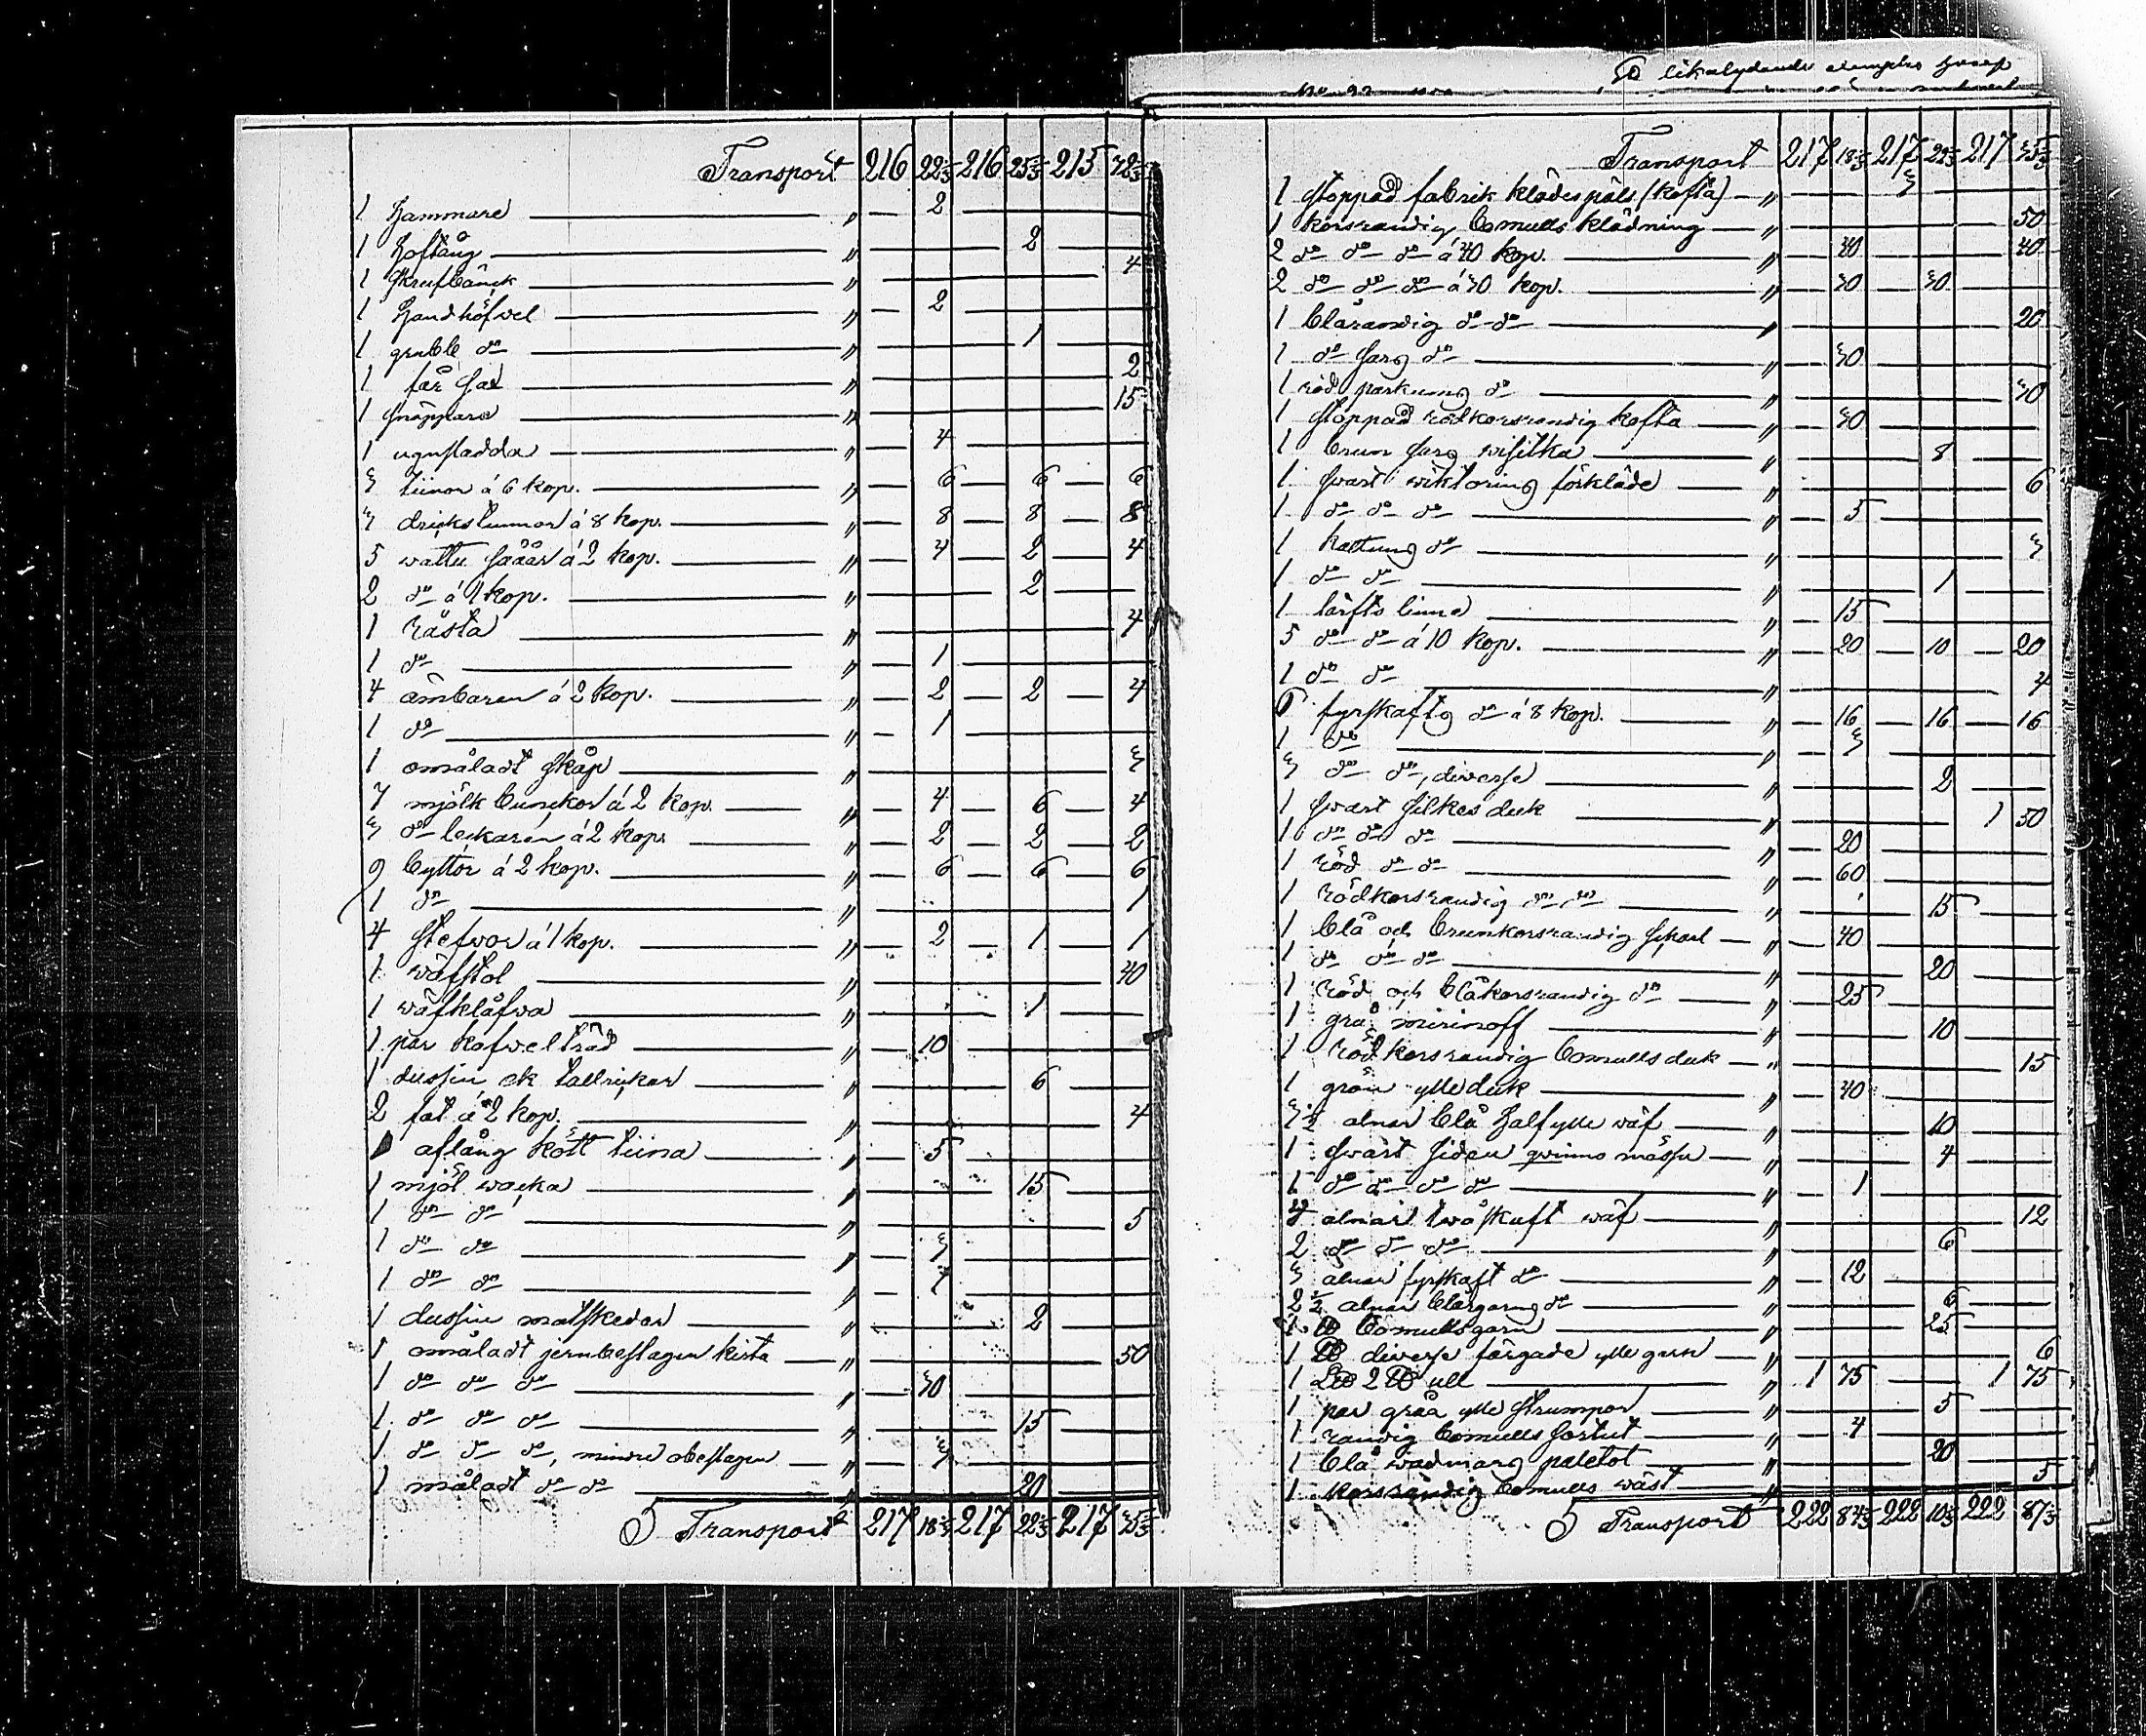 likalydande exemplar
Transport 216 22 2/3 216 25 2/3 215 72 2/3
1 hammare „ 2
1 hoftång „ 2
1 skrufbänck „ 4
1 handhöfvel „ 2
1 grubble do „ 1
1 „ 2
1 snäppare „ 15
1 ugnsladda „ 4
3 tiinor á 6 kop. „ 6 6 6
3 drickstunnor á 8 kop. „ 8 8 8
5 wattu såår á 2 kop. „ 4 2 4
2 do á 1 kop. „ 2
1 „ 4
1 do „ 1
4 ämbaren á 2 kop. „ 2 2 4
1 do „ 1
1 omåladt skåp „ 3
7 mjölk bunckor á 2 kop. „ 4 6 4
3 do á 2 kop. „ 2 2 2
9 byttor á 2 kop. „ 6 6 6
1 do „ 1
4 stefvor á 1 kop. „ 2 1 1
1 wäfstol „ 40
1 wäfklåfva „ 1
1 par „ 10
1 dussin ek tallrickar „ 6
2 fat á 2 kop. „ 4
1 aflång kött tiina „ 5
1 mjöl wacka „ 15
1 do do „ 5
1 do do „ 3
1 do do „ 7
1 dussin matskedar „ 2
1 omåladt jernbeslagen kista „ 50
1 do do do „ 30
1 do do do „ 15
1 do do do, mindre obeslagen „ 3
1 måladt do do „ 20
Transport 217 18 2/3 217 22 2/3 217 35 2/3
Transport 217 18 2/3 217 22 2/3 217 35 2/3
1 stoppad fabrik klädes päls (kofta) „ 3
1 korsrandig bomulls klädning „ 50
2 do do do á 40 kop. „ 40 40
2 do do do á 30 kop. „ 30 30
1 blårandig do do „ 20
1 do sarg do „ 30
1 röd parkumg do „ 30
1 stoppad rödkorsrandig kofta „ 30
1 brun sarg wisitka „ 8
1 swart wiktoring förkläde „ 6
1 do do do „ 5
1 kattung do „ 3
1 do do „ 1
1 lärfts linne „ 15
5 do do á 10 kop. „ 20 10 20
1 do do „ 4
fyrskaftg do á 8 kop. „ 16 16 16
1 do „ 3
3 do do, diverse „ 2
1 swart silkes duk „ 1 50
1 do do do „ 20
1 röd do do „ 60
1 rödkorsrandig do do „ 15
1 blå och brunkorsrandig scharl „ 40
1 do do do „ 20
1 röd och blåkorsrandig do „ 25
1 grå mirinoff „ 10
1 röd korsrandig bomulls duk „ 15
1 grön ylle duk „ 40
3 1/2 alnar blå halfylle wäf „ 10
1 swart siden qvinns mössa „ 4
1 do do do do „ 1
alnar twåskaft wäf „ 12
2 do do do „ 6
3 alnar fyrskaft do „ 12
2 1/2 alnar blårgarns do „ 6
1 ℔ bomullsgarn „ 25
1 ℔ diverse färgade ylle garn „ 6
1 L℔ 2 ℔ ull „ 1 75 1 75
1 par gråa ylle strumpor „ 5
1 randig bomulls sortut „ 4
1 blå wadmars paletot „ 20
1 korsrandig bomulls wäst „ 5
Transport 222 84 2/3 222 10 2/3 222 8 1/3